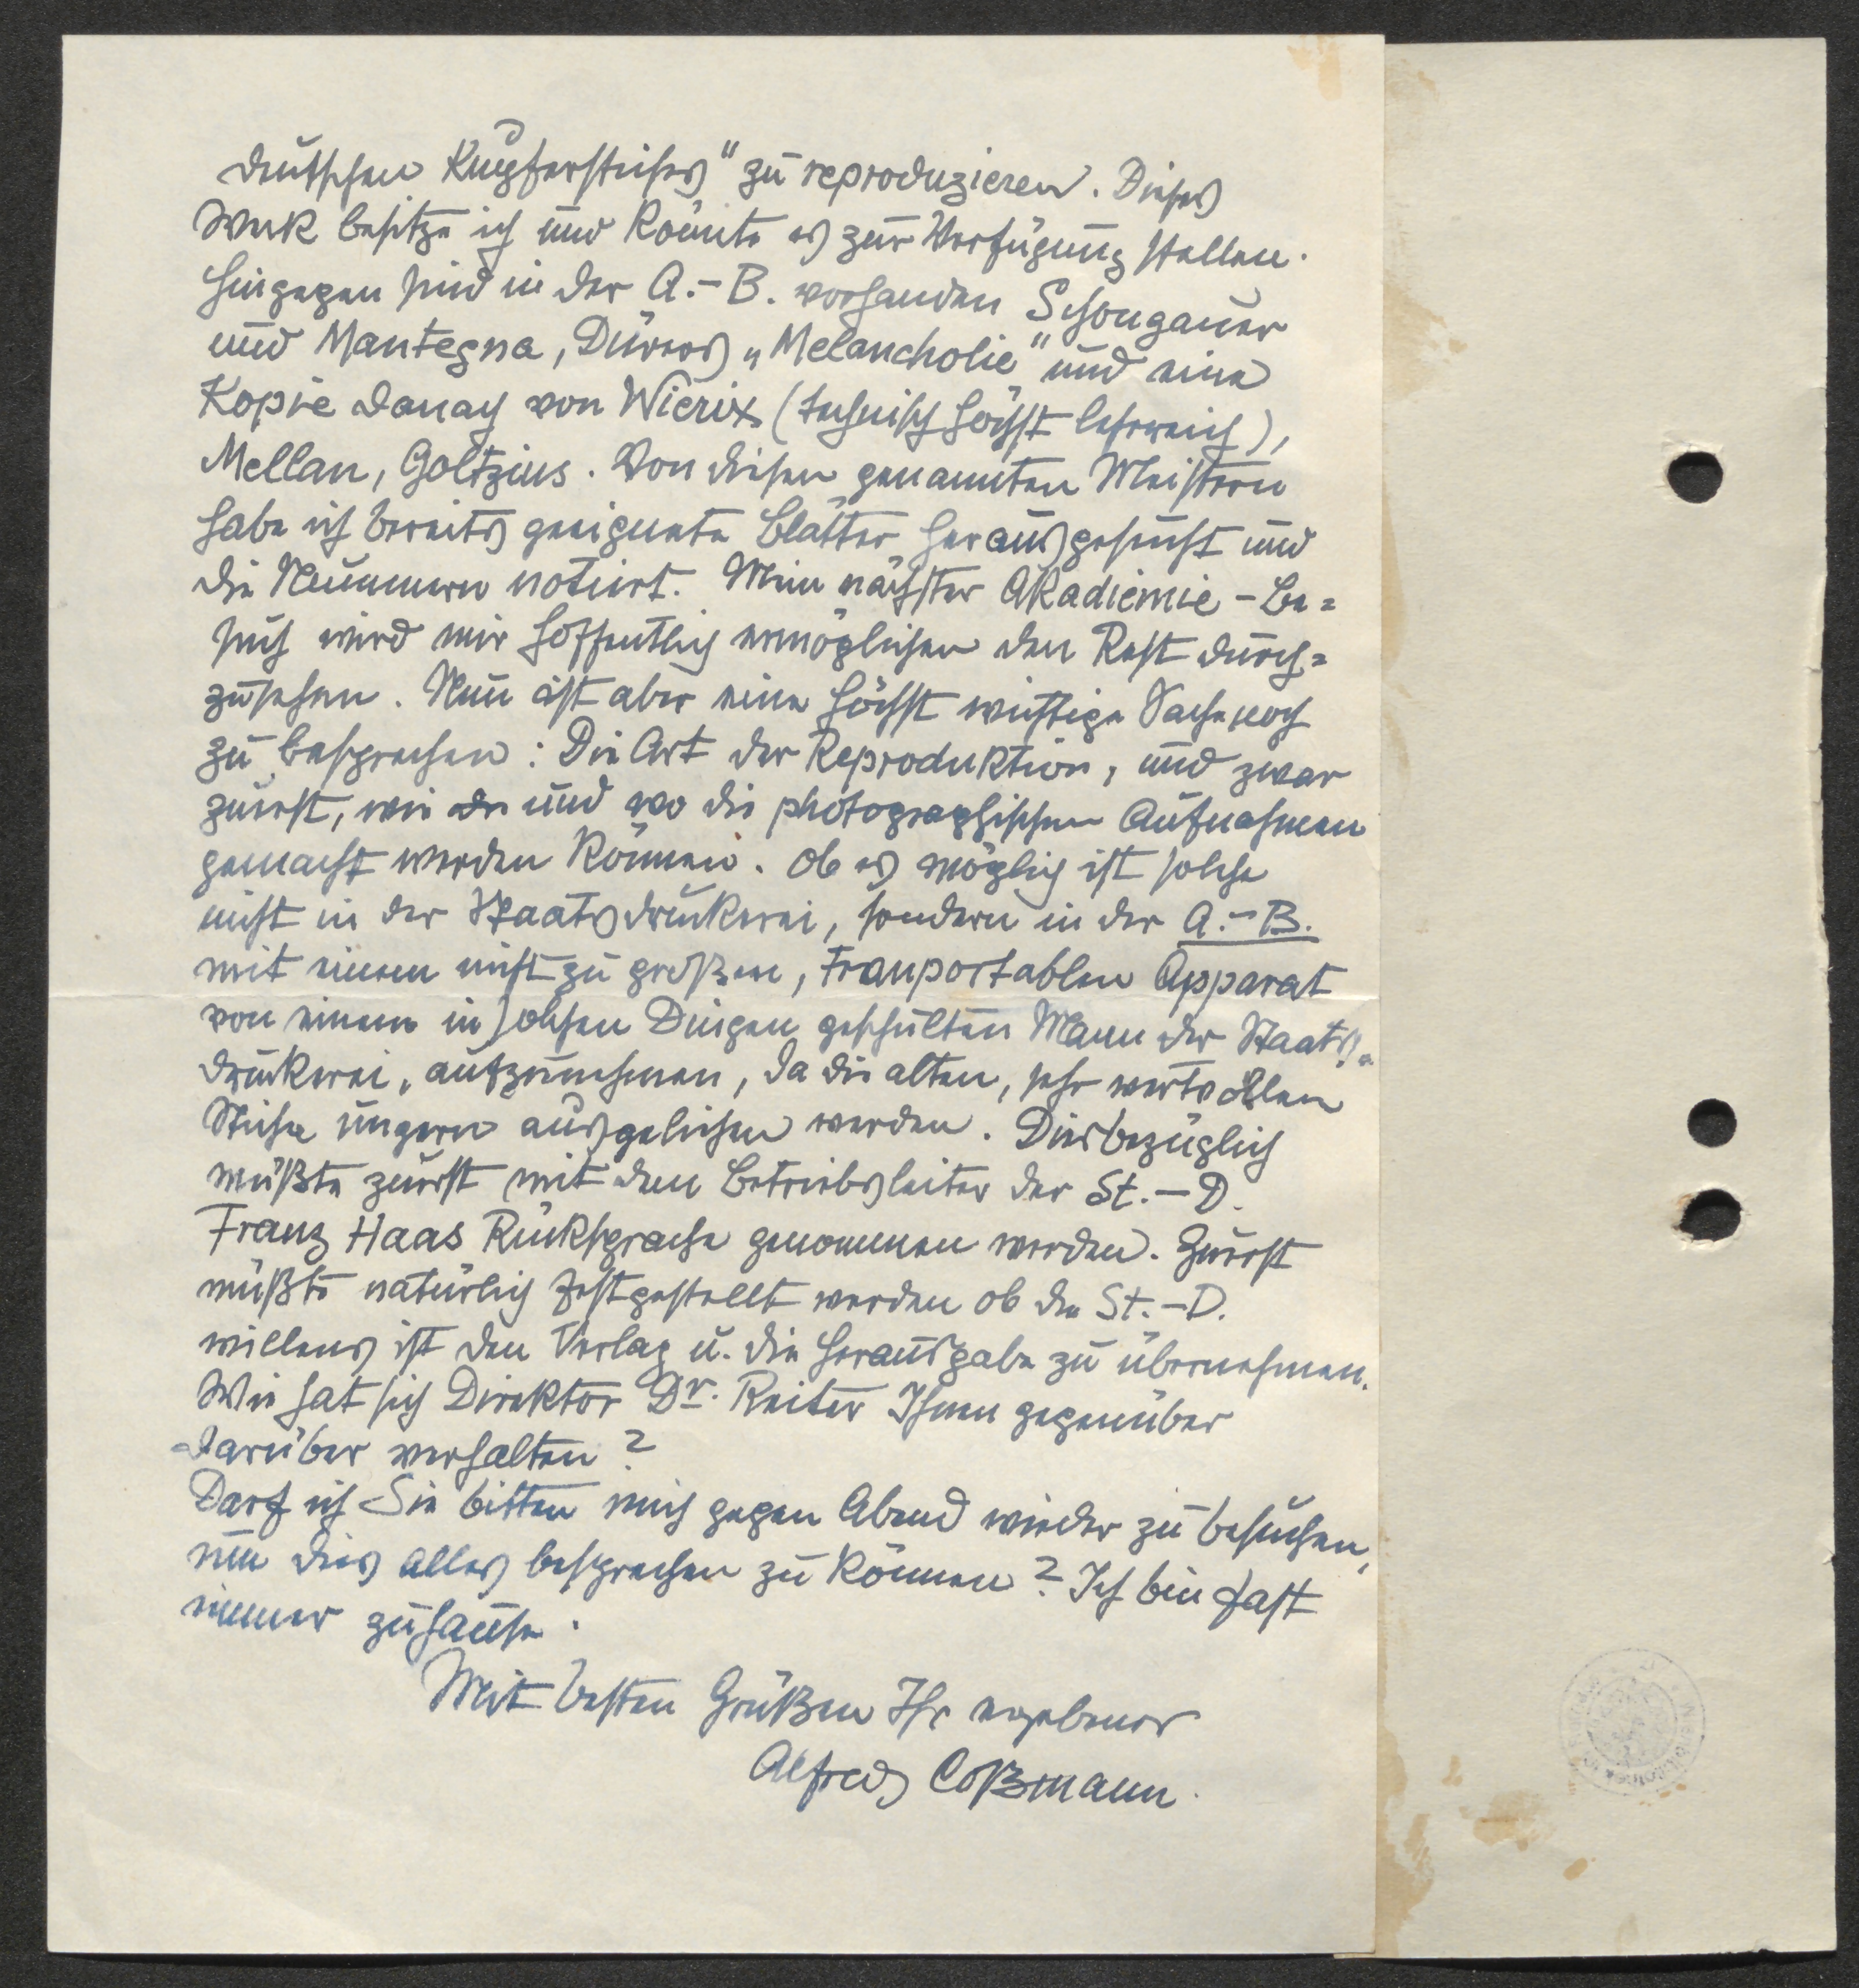 deutschen Kupferstiches" zu reproduzieren. Dieses
Werk besitze ich und könnte es zur Verfügung stellen.
Hingegen sind in der A.-B. vorhanden Schongauer
und Mantegna, Dürers „Melancholie" und eine
Kopie danach von Wierix (technisch höchst lehrreich),
Mellan, Goltzius. Von diesen genannten Meistern
habe ich bereits geeignete Blätter herausgesucht und
die Nummern notiert. Mein nächster Akademie-Be=
such wird mir hoffentlich ermöglichen den Rest durch=
zusehen. Nun ist aber eine höchst wichtige Sache noch
zu besprechen: Die Art der Reproduktion, und zwar
zuerst, wie und wo die photographischen Aufnahmen
gemacht werden können. Ob es möglich ist solche
nicht in der Staatsdruckerei, sondern in der A.-B.
mit einem nicht zu großen, tranportablen Apparat
von einem in solchen Dingen geschulten Mann der Staats=
druckerei, aufzunehmen, da die alten, sehr wertvollen
Stiche ungern ausgeliehen werden. Diesbezüglich
müßte zuerst mit dem Betriebsleiter der St.-D.
Franz Haas Rücksprache genommen werden. Zuerst
müßte natürlich festgestellt werden ob die St.-D.
willens ist den Verlag u. die Herausgabe zu übernehmen.
Wie hat sich Direktor Dr. Reiter Ihnen gegenüber
darüber verhalten?
Darf ich Sie bitten mich gegen Abend wieder zu besuchen,
um dies alles besprechen zu können? Ich bin fast
immer zuhause.
Mit besten Grüßen Ihr ergebener
Alfred Coßmann.